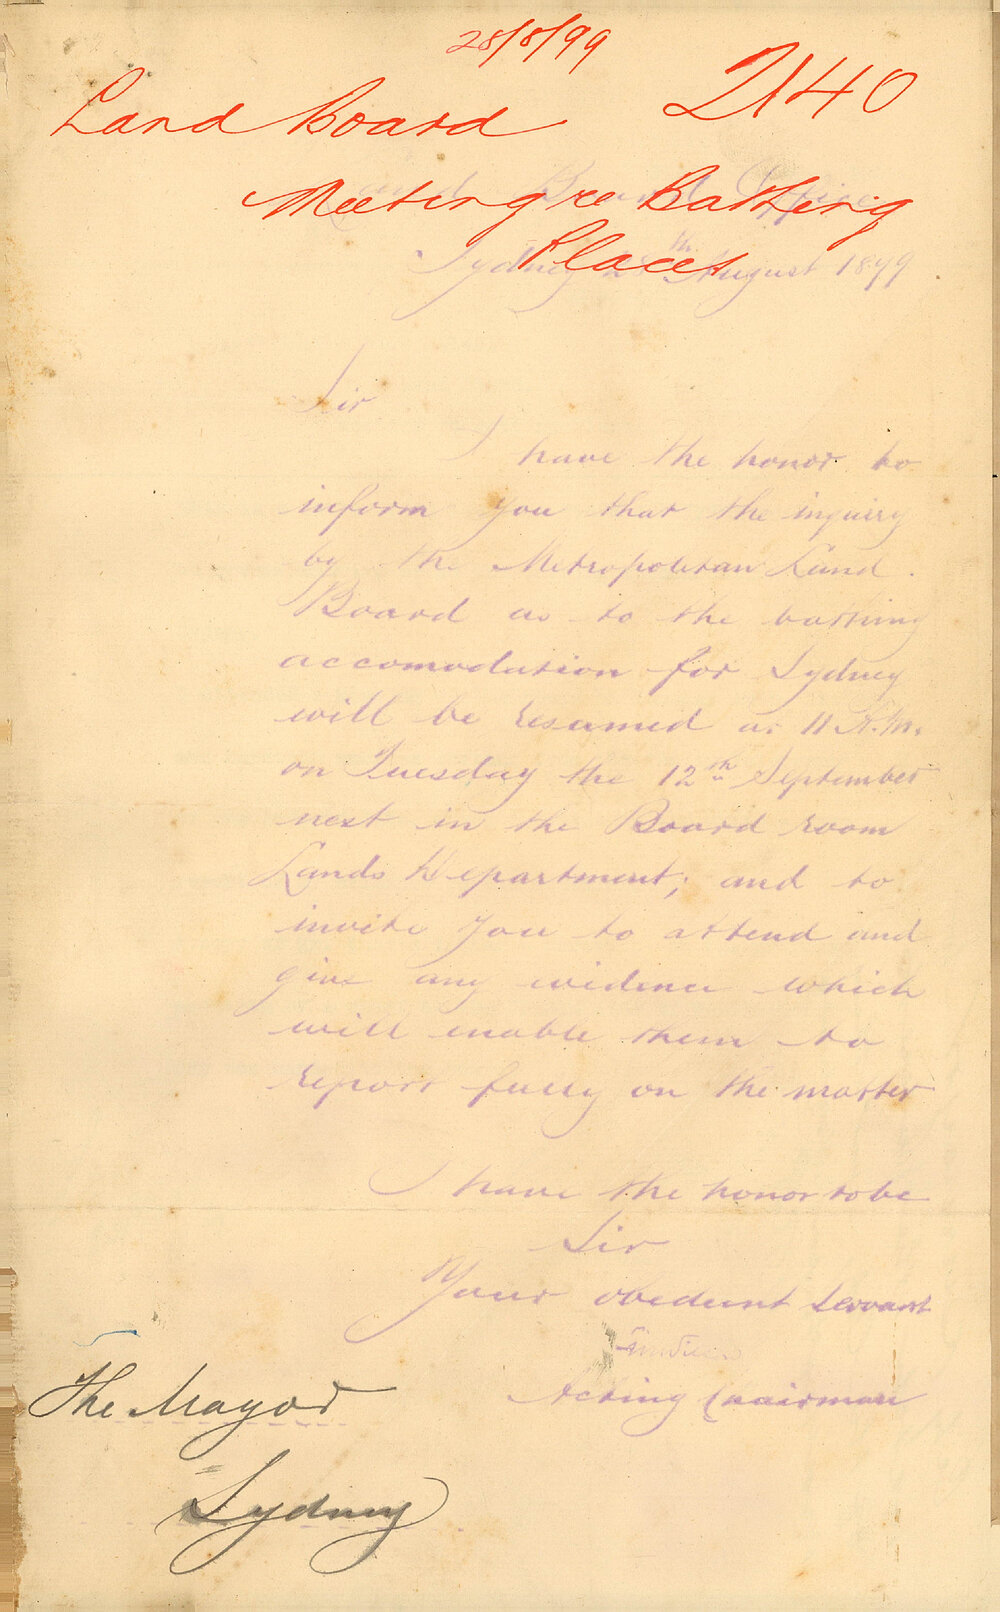 28/8/99
Land Board 2140
Meeting re Bathing
Places
Land Board Office
Sydney August 1899
Sir
I have the honor to
inform you that the inquiry
by the Metropolitan Land
Board as to the bathing
accomodation for Sydney
will be resumed at 11 A.M.
on Tuesday the 12th September
next in the Board room
Lands Department; and to
invite you to attend and
give any evidence which
will enable them to
report fully on the matter
I have the honor to be
Sir
Your obedient servant
Acting Chairman
The Mayor
Sydney